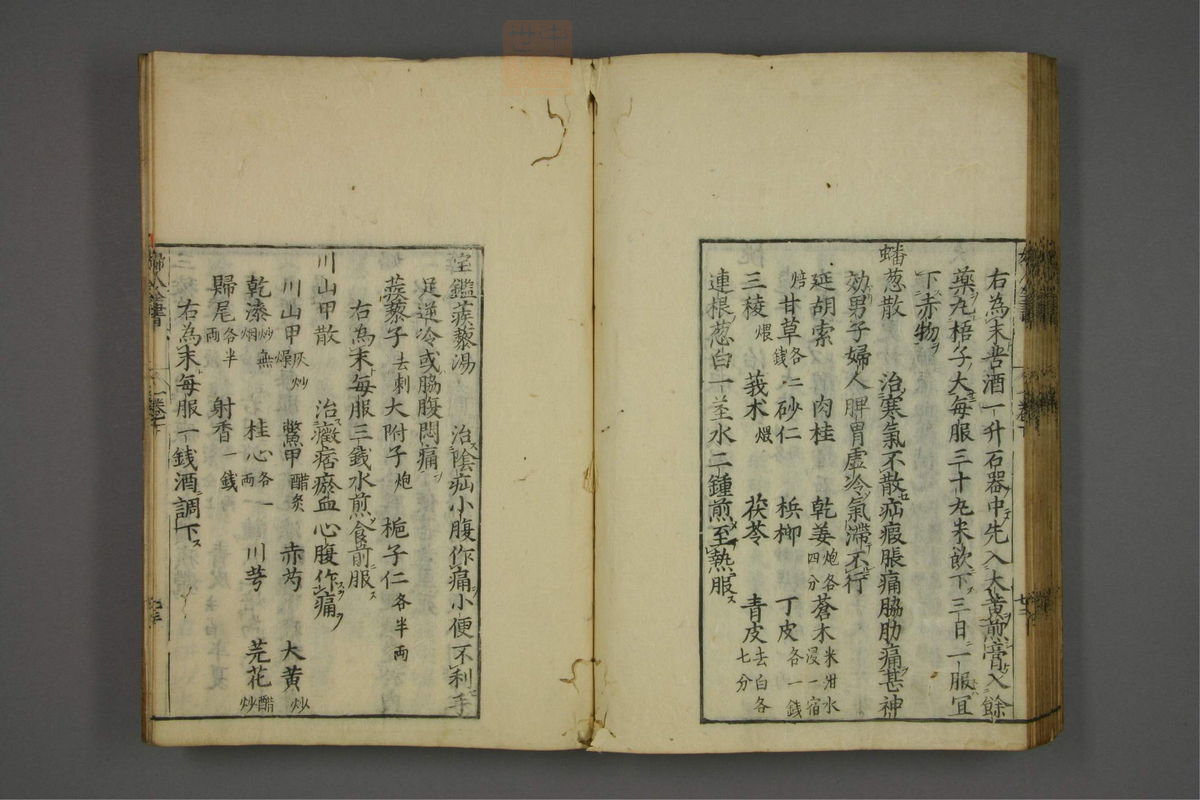 右為末苦酒一升石器中先入大黃煎膏入餘
藥丸梧子大每服三十丸米飲下三日一服宜
下赤物ヲ
蟠葱散 治寒氣不散疝瘕脹痛脇肋痛甚神
効男子婦人脾胃虛冷氣滯不行
延胡索 肉桂 乾姜炮各四分 蒼木米泔水浸一宿
焙 甘草各二錢 砂仁 梹榔 丁皮各一錢
三稜煨 莪术煨 茯苓 青皮去白各七分
連根葱白一莖水二鍾煎至熱服ス
宝鑑蒺藜湯 治陰疝小腹作痛小便不利手
足逆冷或脇腹悶痛
蒺藜子去刺 大附子炮 梔子仁各半両
右為末每服三錢水煎食前服ス
川山甲散 治癥痞瘀血心腹作痛
川山甲灰炒燥 鱉甲醋炙 赤芍 大黃炒
乾漆炒無烟 桂心各一両 川芎 芫花醋炒
歸尾各半両 射香一錢
右為末每服一錢酒調下ス